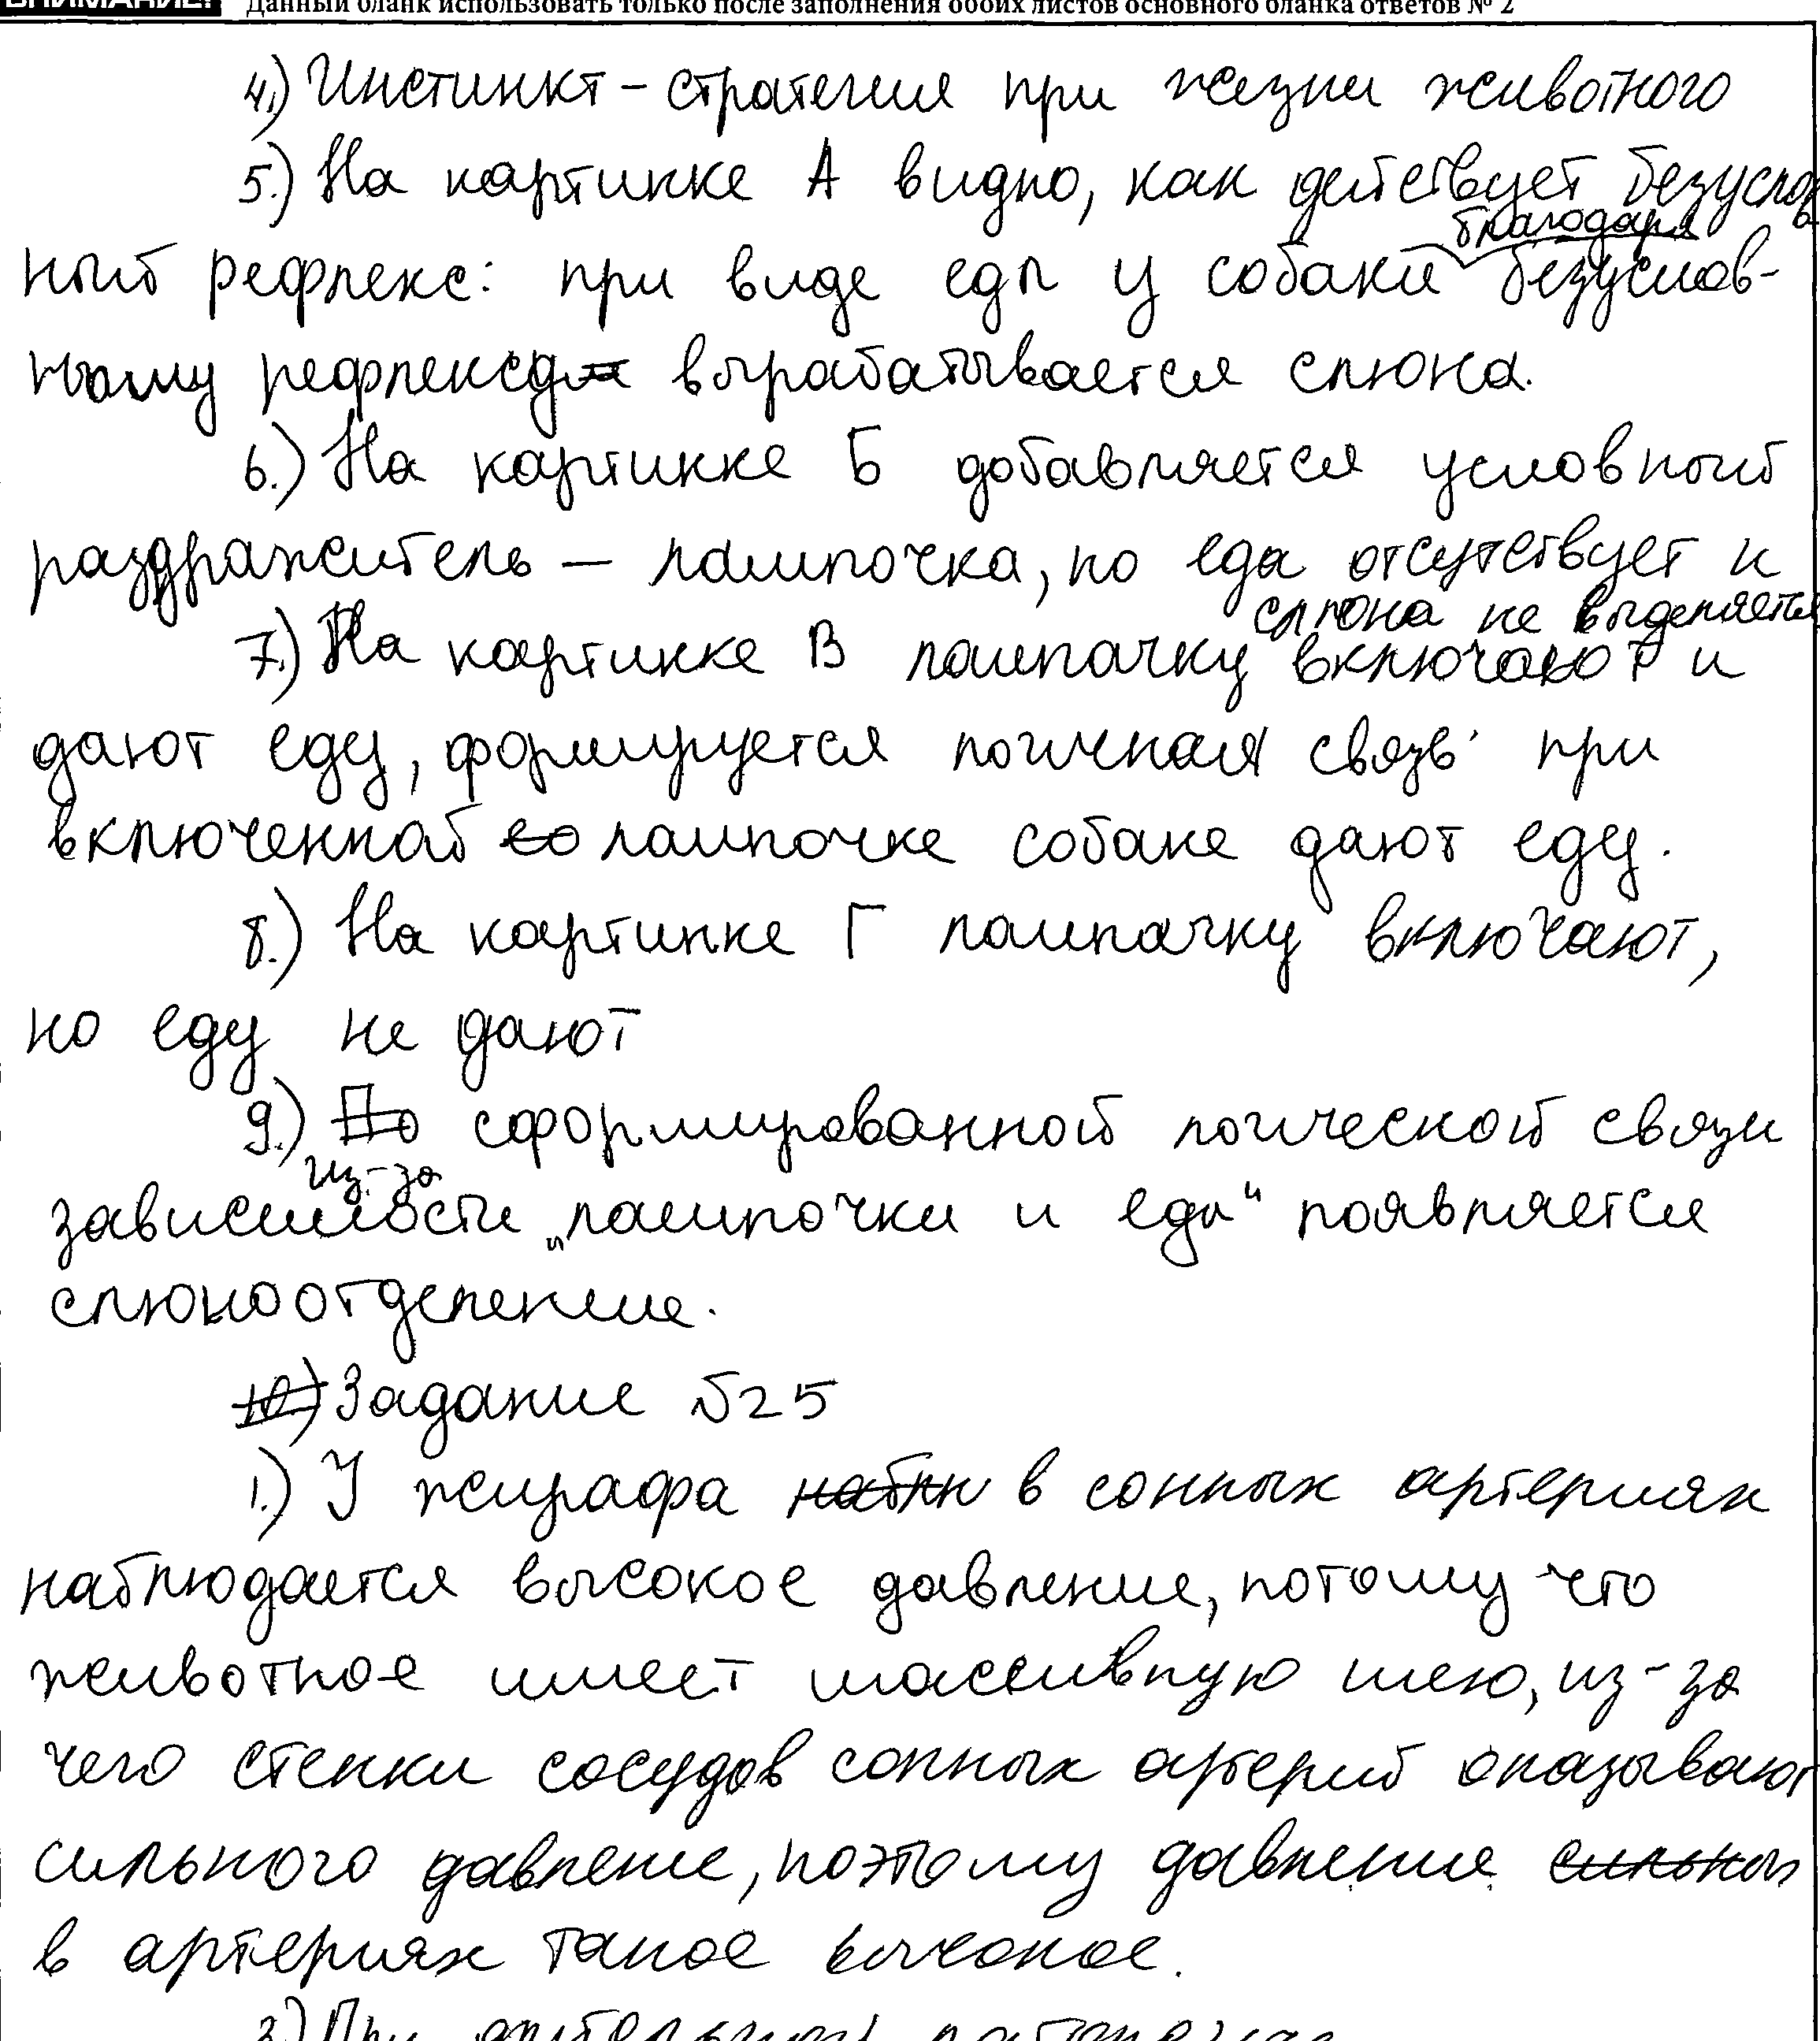 ВНИМАНИЕ! Данный бланк использовать только после заполнения обоих листов основного бланка ответов № 2
4.) Инстинкт – стратегия при жизни животного
5.) На картинке А видно, как действует безуслов
ный рефлекс: при виде еды у собаки благодаря безуслов-
ному рефлексу вырабатывается слюна.
6.) На картинке Б добавляется условный
раздражитель – лампочка, но еда отсутствует и
слюна не выделяется
7.) На картинке В лампачку включают и
дают еду, формируется логичная связь: при
включенной лампочке собаке дают еду.
8.) На картинке Г лампачку включают,
но еду не дают
9.) Из-за сформированной логической связи
зависимости „лампочки и еды“ появляется
слюноотделение.
Задание №25
1.) У жирафа в сонных артериях
наблюдается высокое давление, потому что
животное имеет массивную шею, из-за
чего стенки сосудов сонных артерий оказывают
сильного давление, поэтому давление
в артериях такое высокое.
2.) При